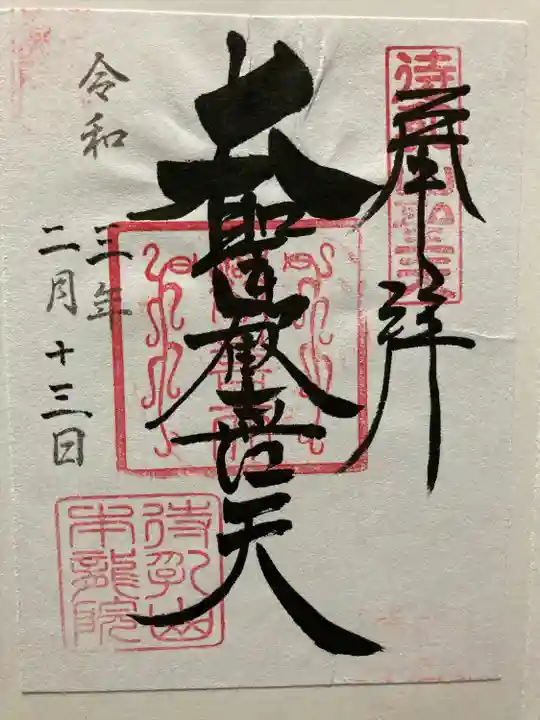 奉拝
待乳山聖天
大聖歓喜天
令和
三年
二月十三日
待乳山
本龍院